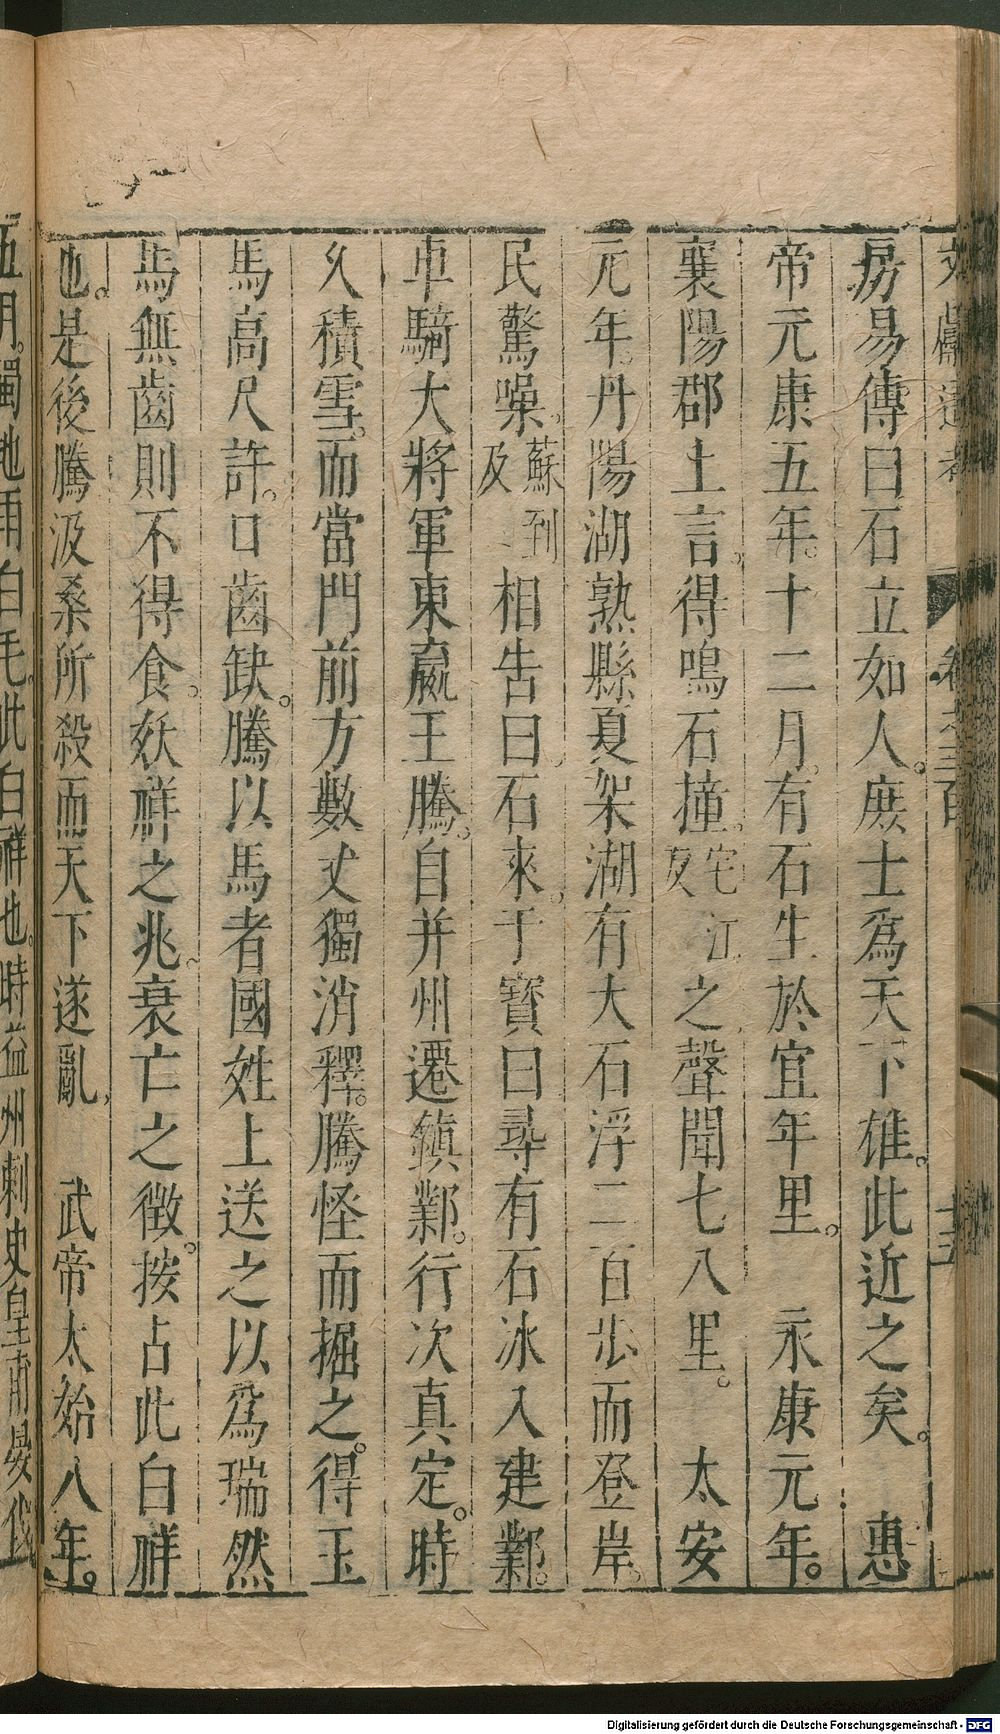 文獻通考 卷之三百 十五
房易傳曰石立如人。庶士爲天下雄。此近之矣。 惠
帝元康五年。十二月。有石生於宜年里。 永康元年。
襄陽郡上言。得鳴石撞。宅江反之聲聞七八里。 太安
元年。丹陽湖熟縣夏架湖有大石浮二百步而登岸。
民驚噪。蘇到及相告曰。石來。于寶曰尋有石冰入建鄴。
車騎大將軍東嬴王騰。自并州遷鎮鄴。行次真定。時
久積雪。而當門前方數丈獨消釋。騰怪而掘之。得玉
馬高尺許。口齒缺。騰以馬者國姓上送之以爲瑞然
馬無齒則不得食。妖祥之兆。衰亡之徵。按占此白祥
也。是後騰汲桑所殺而天下遂亂。 武帝太始八年。
五月。蜀地雨白毛。此白祥也。時益州刺史皇甫晏伐
Digitalisierung gefördert durch die Deutsche Forschungsgemeinschaft - DFG